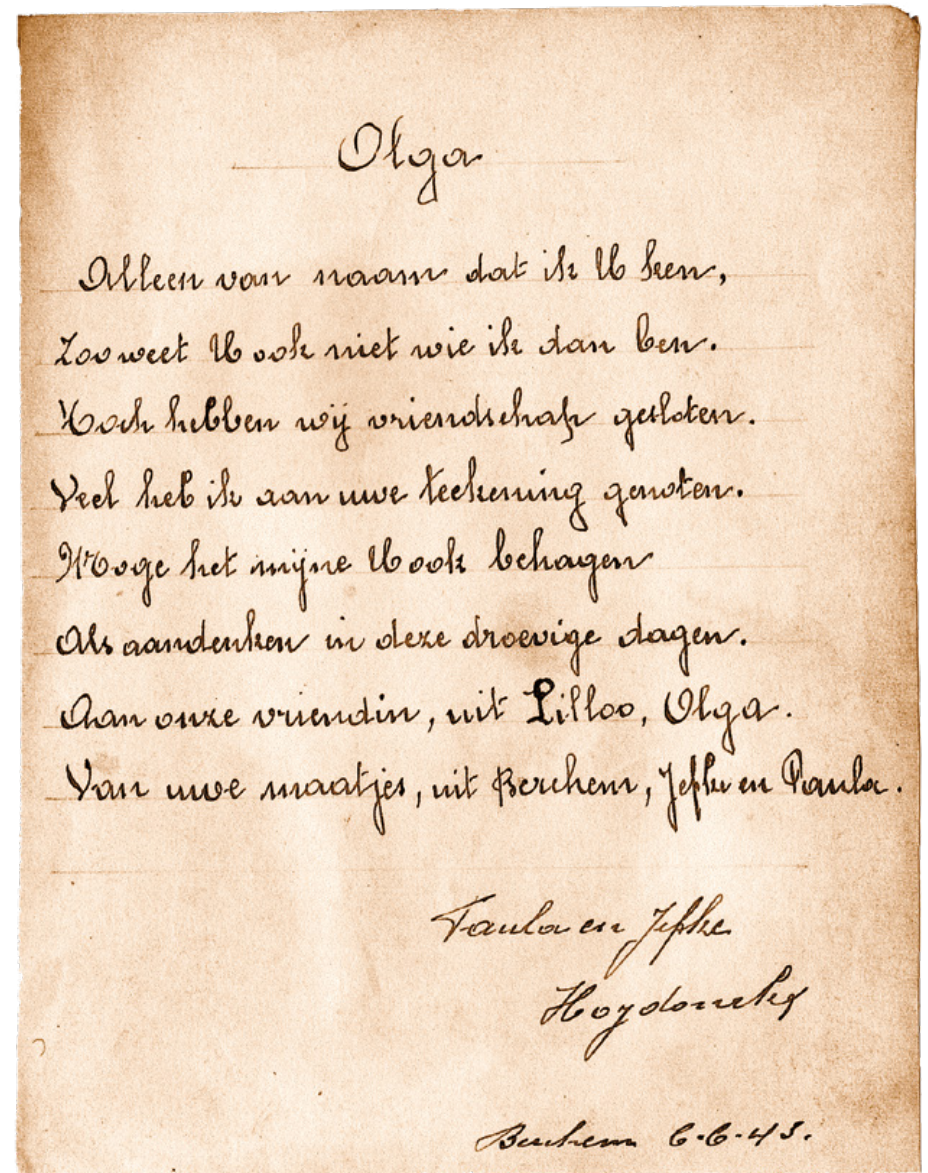 Olga
Alleen van naam dat ik U ken,
Zoo weet U ook niet wie ik dan ben.
Toch hebben wij vriendschap gesloten.
Veel heb ik aan uwe teekening genoten.
Moge het mijne U ook behagen
Als aandenken in deze droevige dagen.
Aan onze vriendin, uit Lilloo, Olga.
Van uwe maatjes, uit Berchem, Jefke en Paula.
Paula en Jefke
Hoydonckx
Berchem 6-6-43.